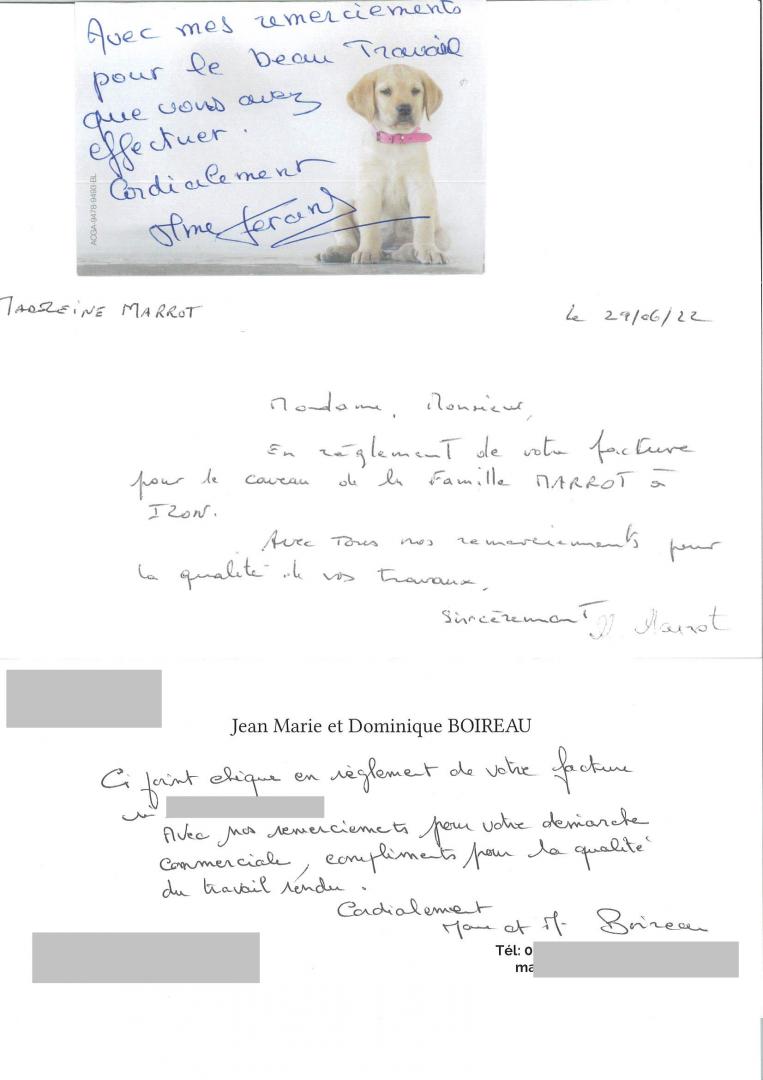 Avec mes remerciements
pour le beau Travail
que vous avez
effectuer.
Cordialement
Mme
ACGA-9478-9493-BL
MARROT
le 29/06/22
Madame, Monsieur,
En règlement de votre facture
pour le caveau de la Famille MARROT à
IZON.
Avec Tous nos remerciements pour
la qualité de vos travaux.
Sincèrement Marrot
Jean Marie et Dominique BOIREAU
Ci joint chèque en règlement de votre facture
n°
Avec nos remerciements pour votre démarche
commerciale, compliments pour la qualité
du travail rendu.
Cordialement
et M. Boireau
Tél: 0
ma